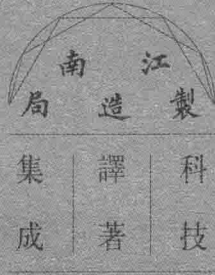 江南
製造局
科技
譯著
集成